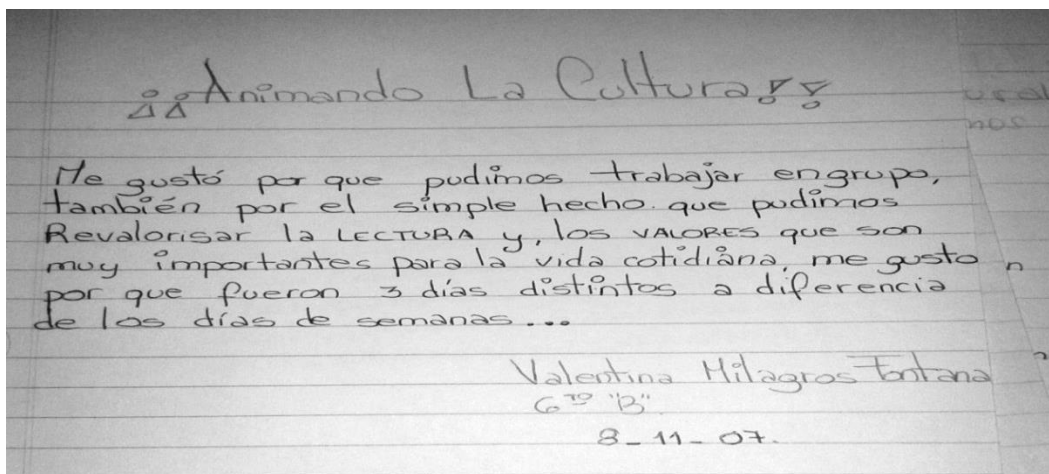 ¡¡Animando La Cultura!!
Me gustó por que pudimos trabajar engrupo,
también por el simple hecho que pudimos
Revalorisar la LECTURA y, los VALORES que son
muy importantes para la vida cotidiana, me gusto
por que fueron 3 días distintos a diferencia
de los días de semanas...
Valentina Milagros Fontana
6to "B"
8-11-07.